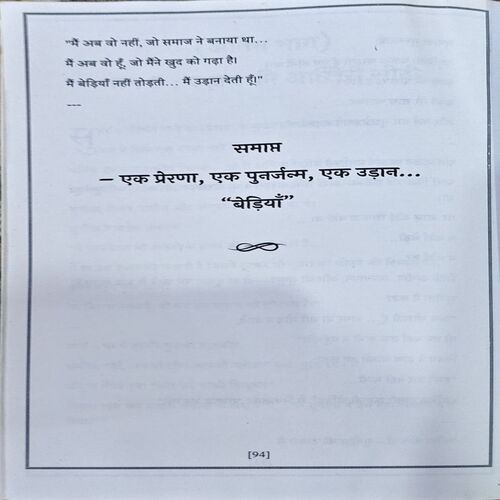 "मैं अब वो नहीं, जो समाज ने बनाया था...
मैं अब वो हूँ, जो मैंने खुद को गढ़ा है।
मैं बेड़ियाँ नहीं तोड़ती... मैं उड़ान देती हूँ।"
---
समाप्त
– एक प्रेरणा, एक पुनर्जन्म, एक उड़ान...
“बेड़ियाँ”
[94]